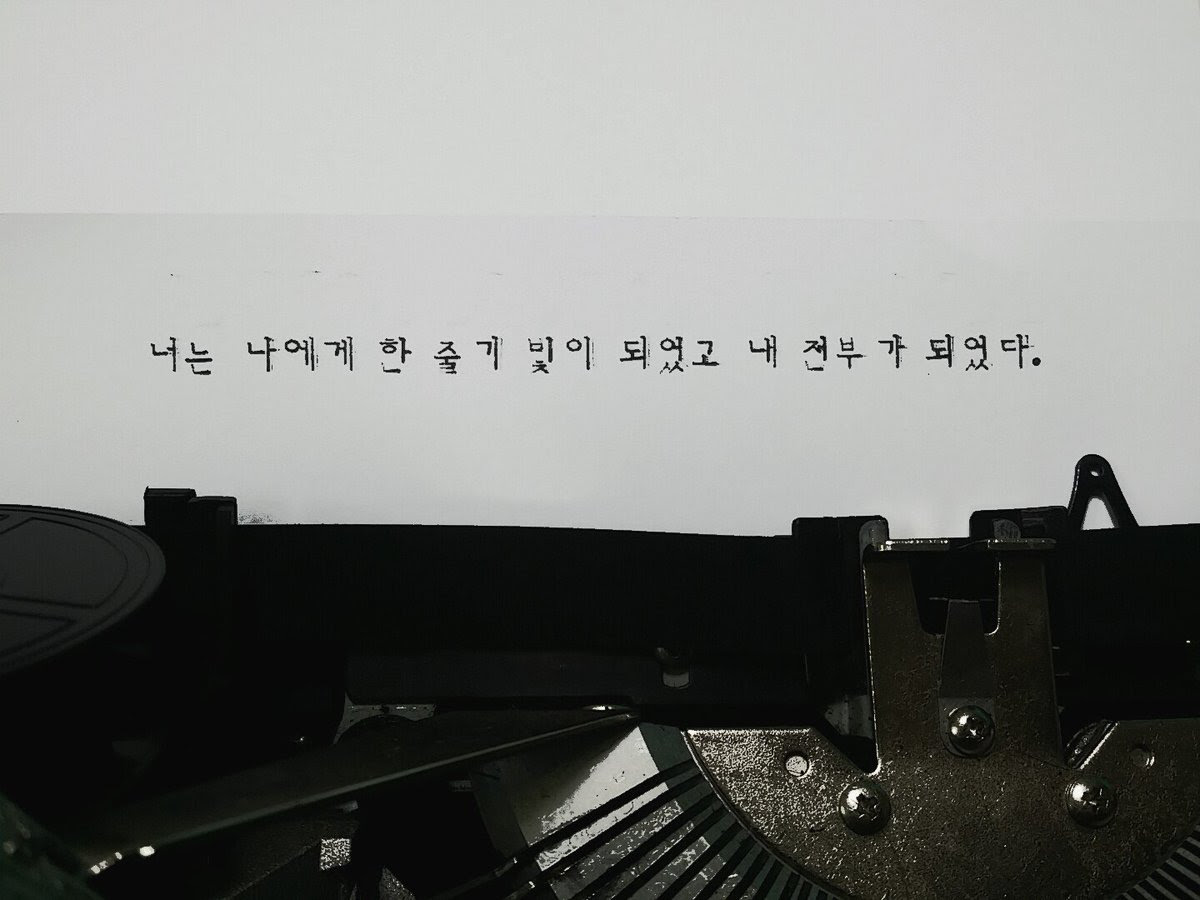 너는 나에게 한 줄기 빛이 되었고 내 전부가 되었다.